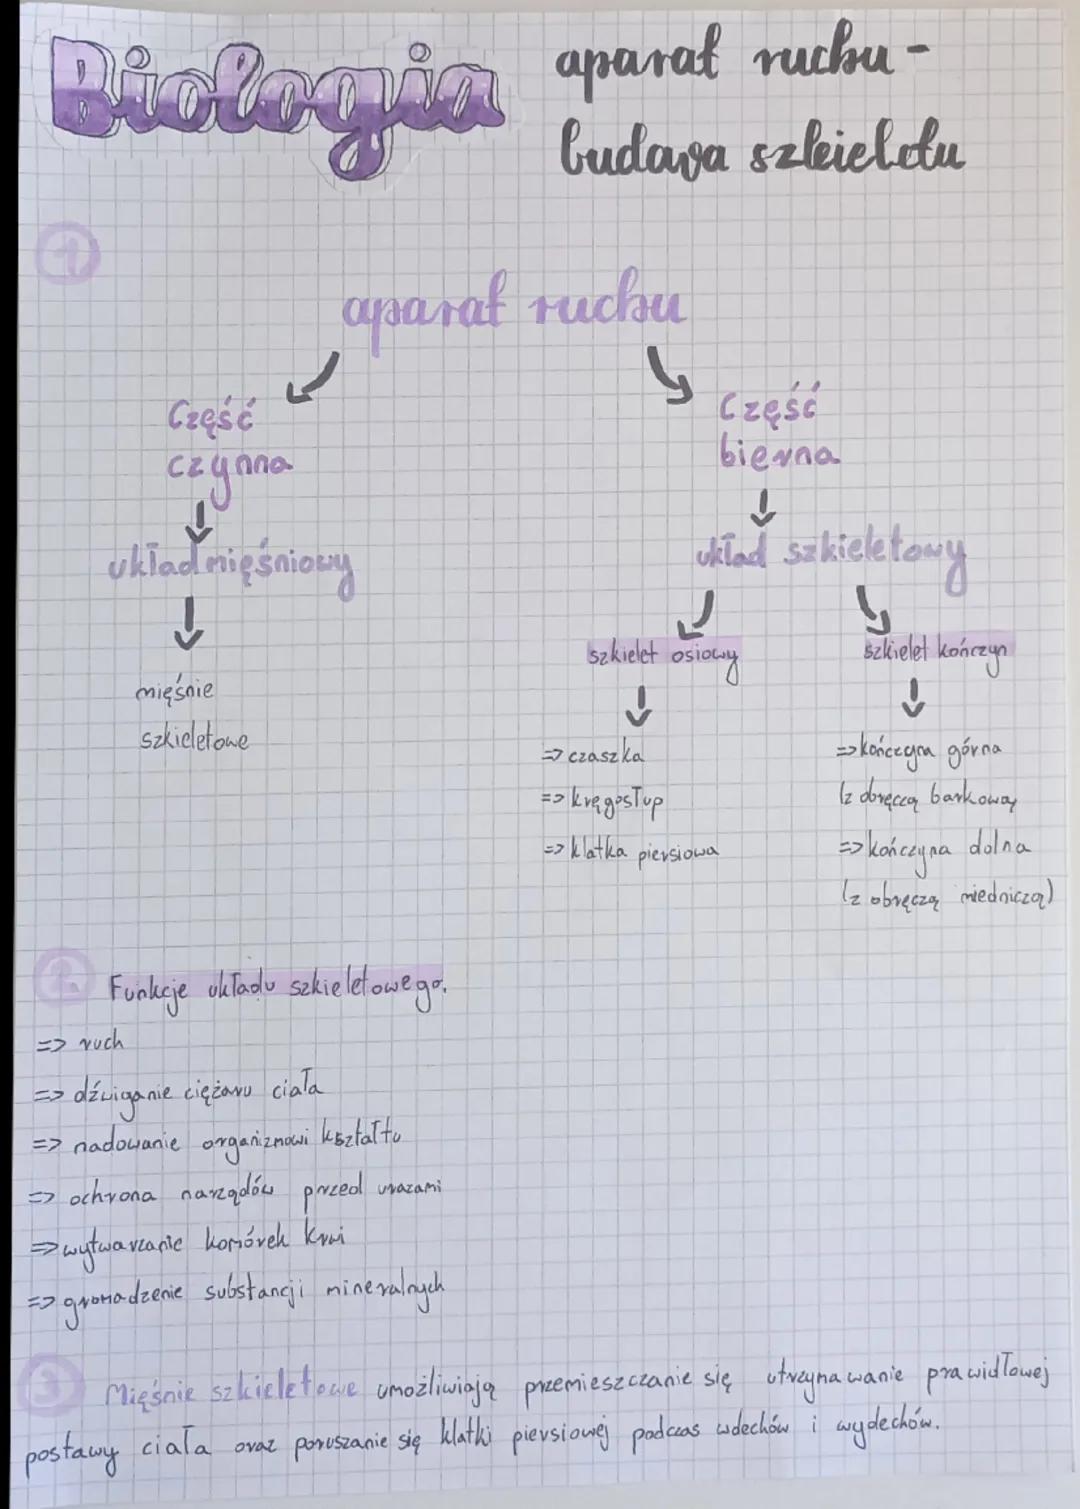 Biologia
aparat ruchu -
budowa szkieletu
1
aparat ruchu
Część
czynna
Część
bierna
układ mięśniowy
układ szkieletowy
mięśnie
szkieletowe
szkielet osiowy
szkielet kończyn
=> czaszka
=> kręgosłup
=> klatka piersiowa
=> kończyna górna
(z obręczą barkową)
=> kończyna dolna
(z obręczą miedniczą)
2 Funkcje układu szkieletowego.
=> ruch
=> dźwiganie ciężaru ciała
=> nadowanie organizmowi kształtu
=> ochrona narządów przed urazami
=> wytwarzanie komórek krwi
=> gromadzenie substancji mineralnych
3 Mięśnie szkieletowe umożliwiają przemieszczanie się utrzynawanie prawidłowej
postawy ciała oraz poruszanie się klatki piersiowej podczas wdechów i wydechów.